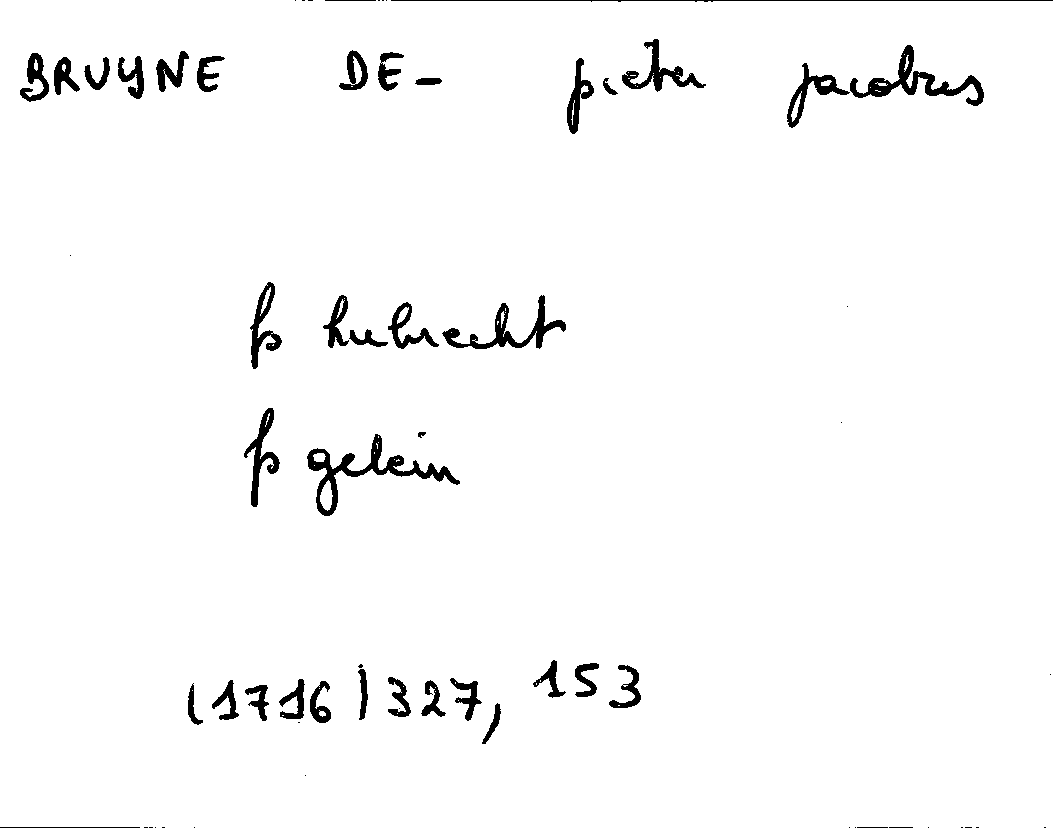 BRUYNE DE- pieter jacobus
fs hubrecht
fs gelein
(1716) 327, 153